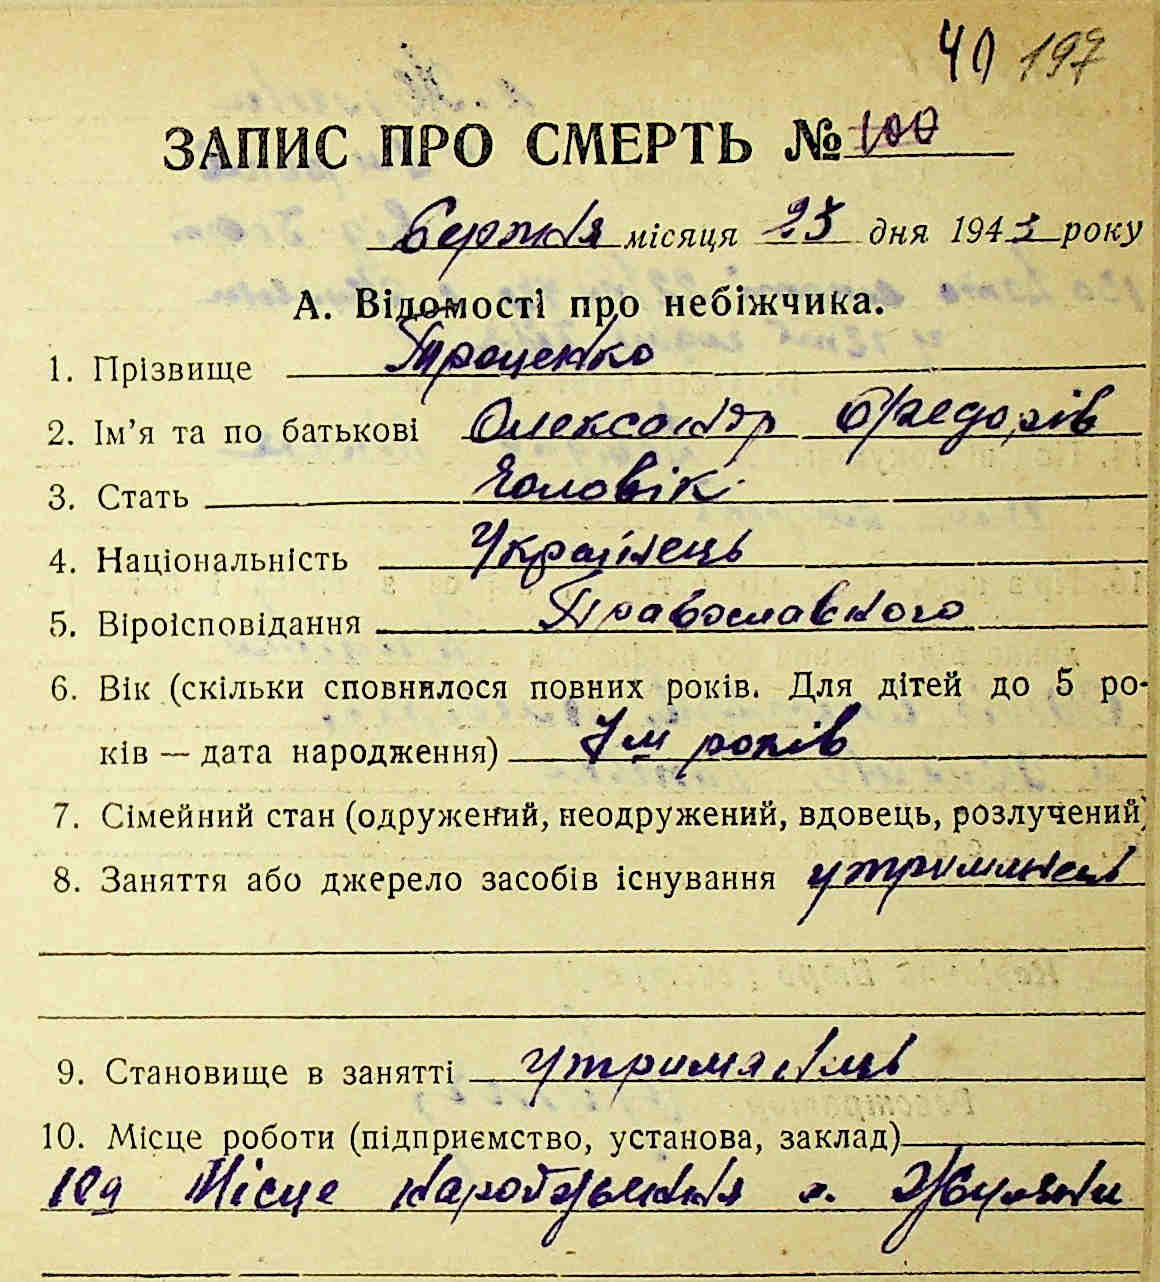 40 197
ЗАПИС ПРО СМЕРТЬ № 100
березня місяця 25 дня 1943 року
А. Відомості про небіжчика.
1. Прізвище Троценко
2. Ім'я та по батькові Олександр Федорів
3. Стать Чоловік
4. Національність Українець
5. Віроісповідання Православного
6. Вік (скільки сповнилося повних років. Для дітей до 5 ро-
ків — дата народження) 7м років
7. Сімейний стан (одружений, неодружений, вдовець, розлучений)
8. Заняття або джерело засобів існування утриманець
9. Становище в занятті Утриманець
10. Місце роботи (підприємство, установа, заклад)
10а Місце народження с. Жуляни